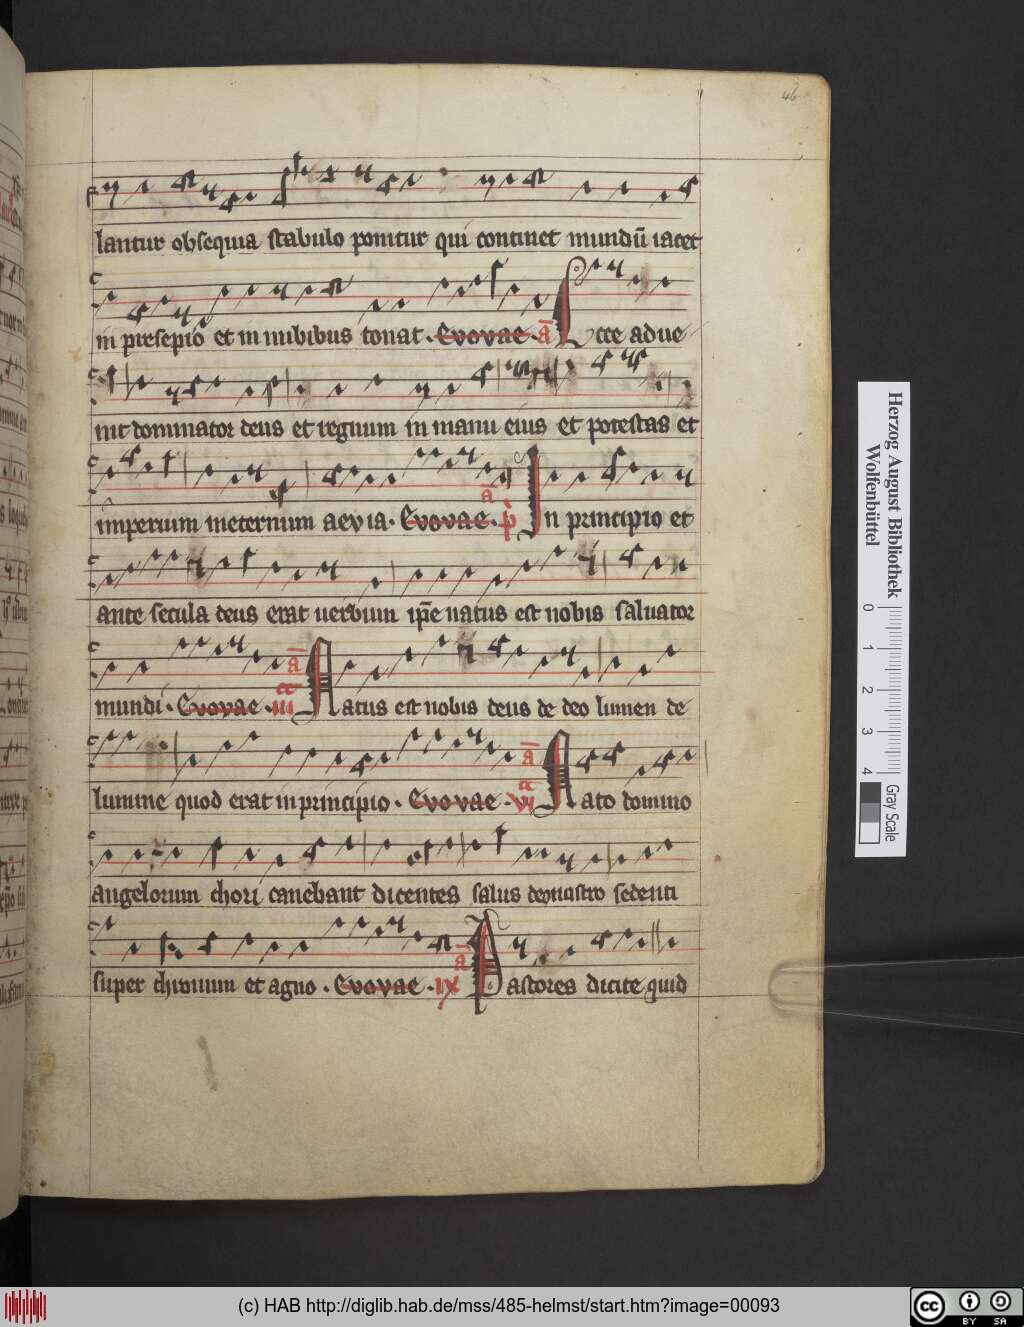 46
lantur obsequia stabulo ponitur qui continet mundū iacet
in presepio et in nubibus tonat. Evovae. ā Ecce adve
nit dominator deus et regnum in manu eius et potestas et
imperium ineternum aevia. Evovae. ā p̄ In principio et
ante secula deus erat uerbum ip̄e natus est nobis saluator
mundi. Evovae. ā cc iii Natus est nobis deus de deo lumen de
lumine quod erat in principio. Evovae. ā cc vi Nato domino
angelorum chori canebant dicentes salus deo nostro sedenti
super thronum et agno. Evovae. ā ix Pastores dicite quid
Herzog August Bibliothek
Wolfenbüttel
0 1 2 3 4
Gray Scale
(c) HAB http://diglib.hab.de/mss/485-helmst/start.htm?image=00093
cc BY SA